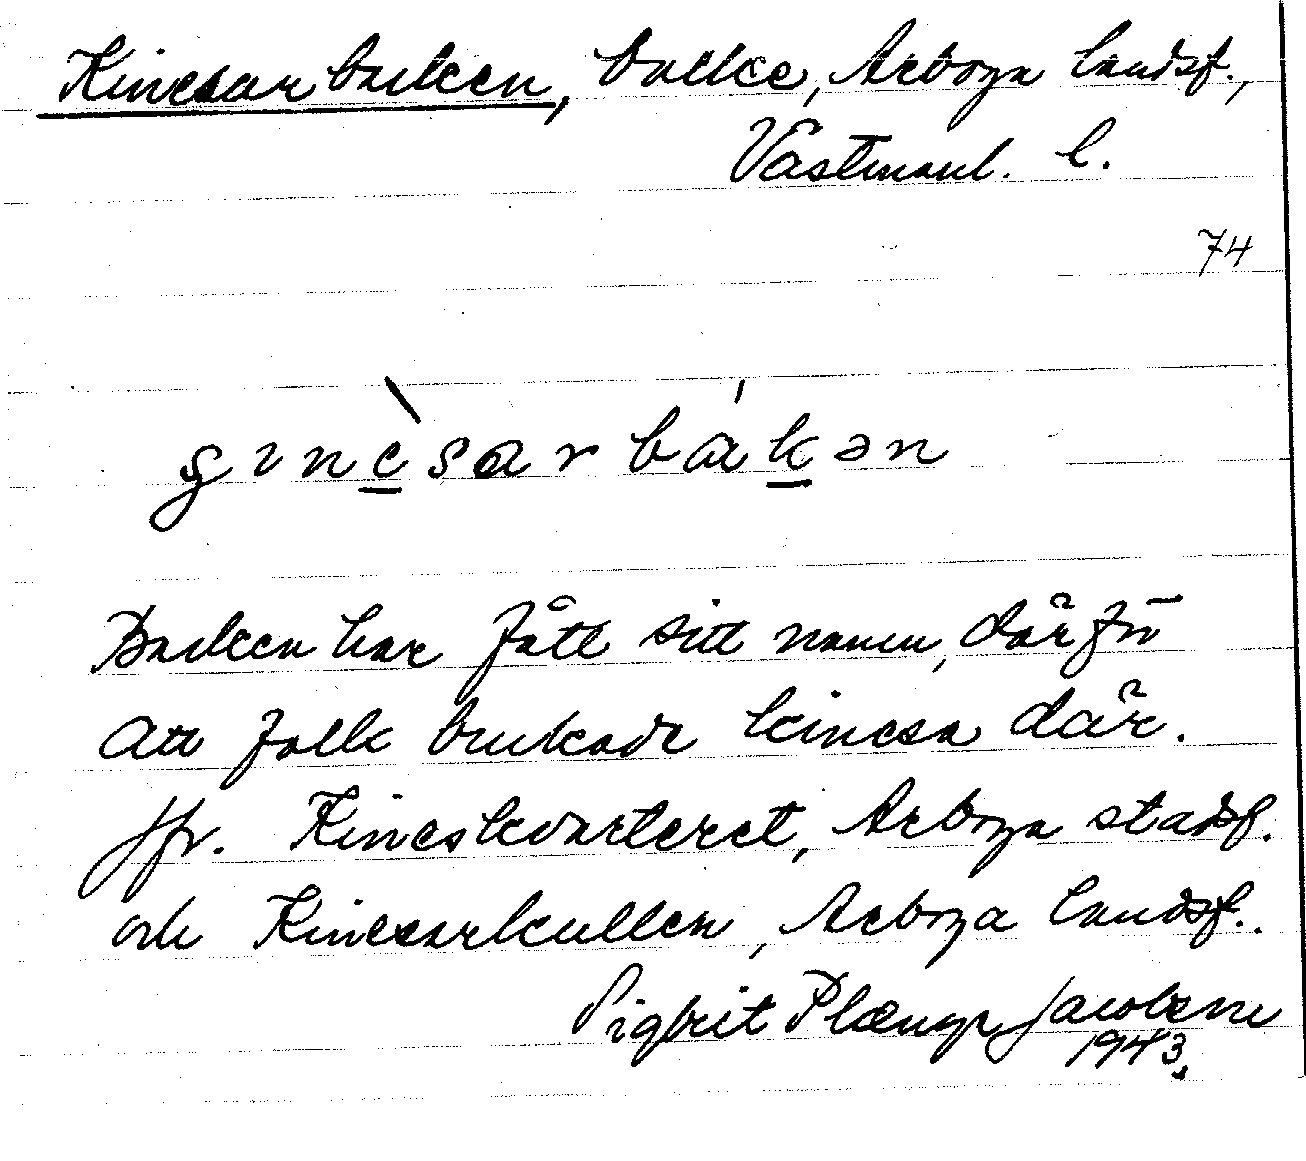 Kinesarbacken, backe, Arboga landsf.,
Västmanl. l.
74
Backen har fått sitt namn, därför
att folk brukade kinesa där.
Jfr. Kineskvarteret, Arboga stadsf.
och Kinesarkullen, Arboga landsf..
Sigbrit Plænge Jacobson
1943.